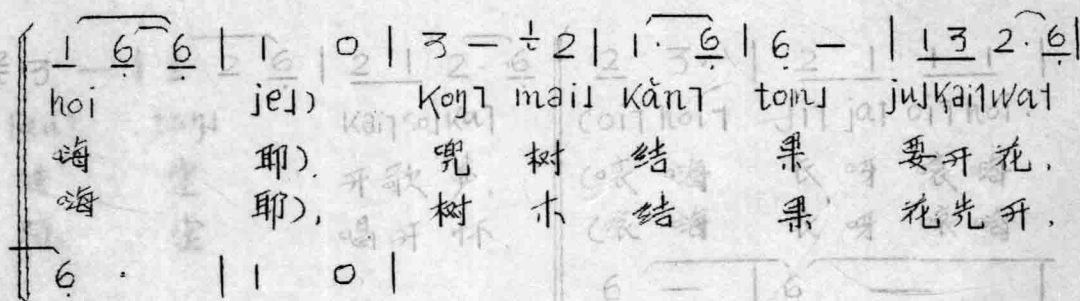 1 6̣ 6̣ | 1 0 | 3 — 2 | 1· 6̣ | 6̣ — | 1 3 2· 6̣ |
hoi je˩) koŋ˥ mai˩ kăn˥ tom˩ ju˩kai˥wa˧
嗨 耶). 兜 树 结 果 要开花.
嗨 耶), 树 木 结 果 花先开.
6̣ · | 1 0 |